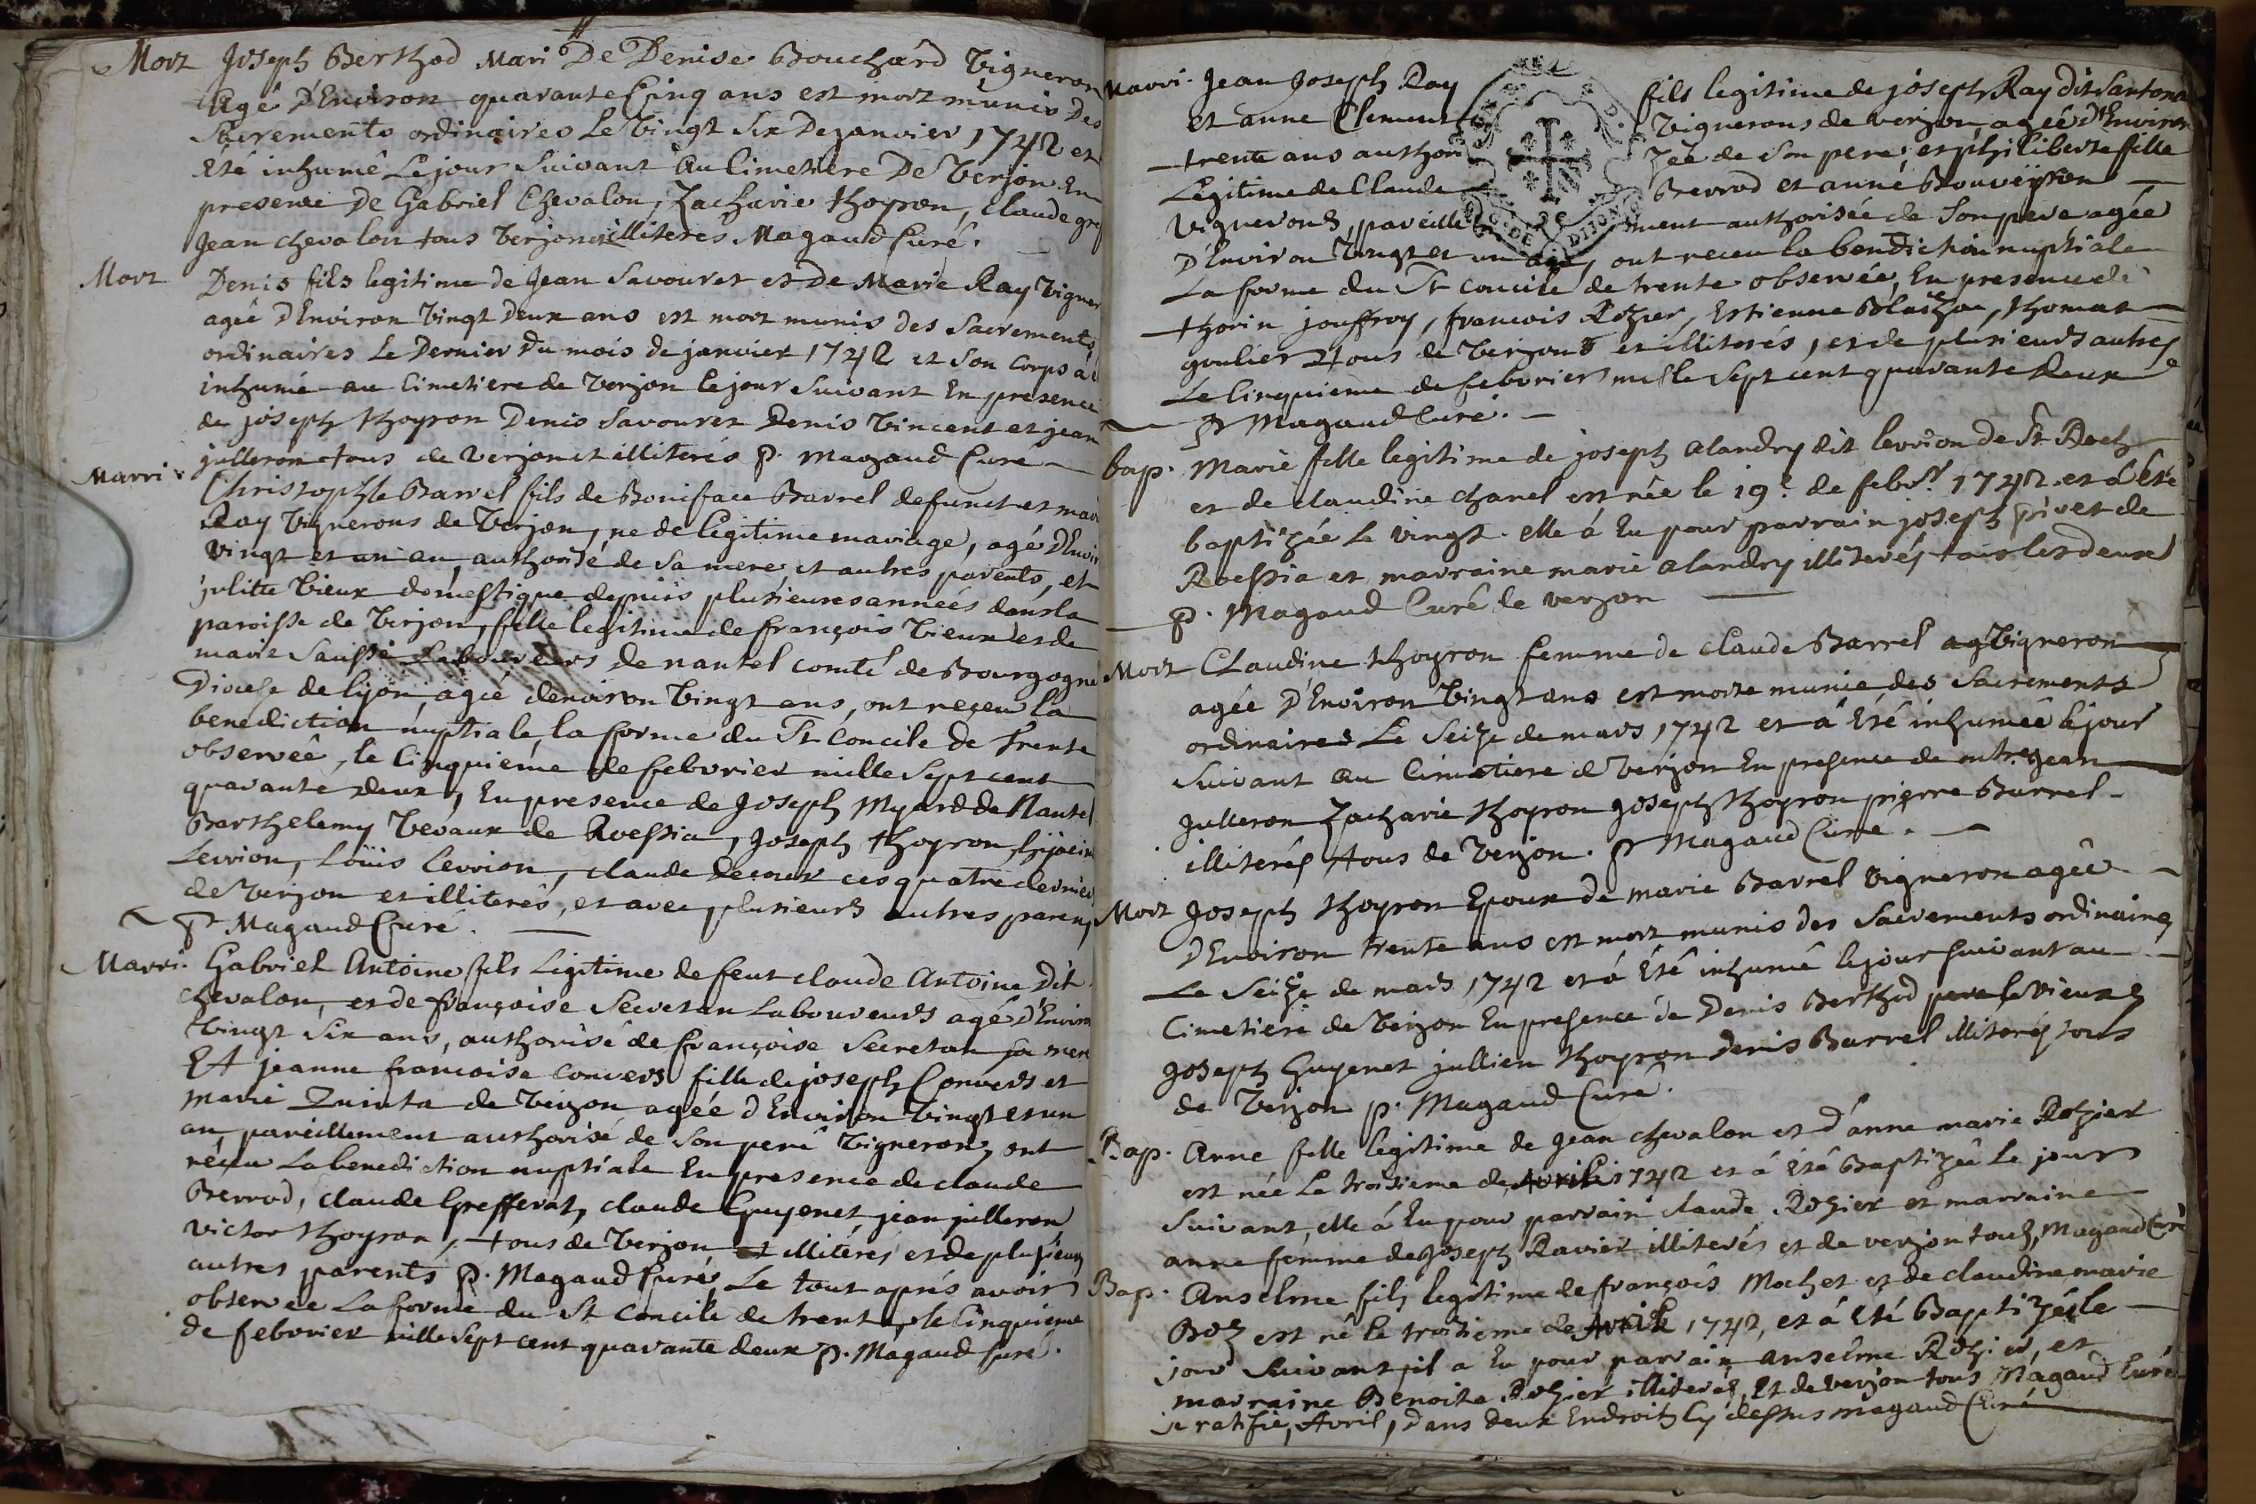 Mort Joseph Berthod Mari De Denise Bouchard Vigneron
Agé D'Environ quarante Cinq ans est mort munis Des
Sacrements ordinaires Le Vingt Six De janvier 1742 et
Eté inhumé Le jour Suivant Au Cimetiere De Verjon En
presence De Gabriel Chevalon, Zacharie thoyron, Claude gref
Jean chevalon tous Verjon illiterés Magaud Curé.
Mort Denis fils legitime de Jean Savouret et De Marie Ray Vigner
agée D'Environ Vingt Deux ans est mort munis des Sacrements
ordinaires Le Dernier Du mois de janvier 1742 et Son Corps a
inhumé au Cimetiere de Verjon le jour Suivant En presence
de joseph thoyron Denis Savouret Denis Vincent et jean
julleron tous de verjon et illiterés p. Magaud Curé
Marri Christophle Barrel fils de Boniface Barrel defunct et mari
Ray Vignerons de Verjon, ne de Legitime mariage, agé D'Envir
Vingt et un an, authorisé de Sa mere et autres parents, et
julitte Vieux domestique depuis plusieures années dans la
paroisse de Verjon, fille legitime de françois Vieux et de
marie Sausse Laboureurs de nantel comté de Bourgogne
Diocese de lyon, agée denviron Vingt ans, ont reçeu la
benediction nuptiale, la forme du St Concile de trente
observeé, le Cinquiéme de febvrier mille Sept cent
quarante deux, En presence de Joseph Myard de Nantel
Barthelemy Vevaux de Roessia, Joseph thoyron, hijacin
Levrion, Loüis Levrion, claude ces quatre dernier
de Verjon et illiterés, et avec plusieurs autres parents
pr Magaud Curé.
Marri. Gabriel Antoine fils Legitime de feut claude Antoine Dit
chevalon, et de françoise Secretan Laboureurs agé D'Enviro
Vingt Six ans, authorisé de françoise Secretan sa mere
Et jeanne francoise convers fille de joseph Convers et
marie Quinta de Verjon agée d'Environ Vingt et un
an, pareillement authorisé de Son peré Vignerons ont
réçeu La benediction nuptiale En presence de claude
Berrod, claude Grefferat, claude Guyenet, jean julleron
victor thoyron, tous de Verjon et illiterés et de plusieurs
autres parents p. Magaud Curé Le tout aprés avoir
observée La forme du St Concile de trente, le Cinquieme
de febvrier mille Sept cent quarante deux p. Magaud Curé.
Marri. Jean Joseph Ray fils legitime de joseph Ray dit Santona
et anne Clement Vignerons de verjon, ageé D'Environ
trente ans authori zée de Son pere, et philiberte fille
Legitime de Claude Berrod et anné Bouveyron
Vignerons, pareille ment authorisée de Son pere agée
D'Environ Vingt et un ans, ont receu la benediction nuptiale
La forme du St Concile de trente observée, En presence de
thorin jouffroy, francois Rozier, Estienne Blaizon, thomas
goulier tous de Verjons et illiterés, et de plusieurs autres
Le Cinquieme de febvrier mille Sept cent quarante deux
pr Magaud Curé.
bap. Marie fille legitime de joseph alandry dit levrion de St Roch
et de claudine chanel est née le 19e. de febvr. 1742. et a été
baptizée Le vingt. elle á Eu pour parrain joseph pivet de
Roessia et marraine marie alandry illiterés tous les deux
p. Magaud Curé de verjon
Mort Claudine thoyron femme de claude Barrel ag Vigneron
agée D'Environ Vingt ans est morte munie des Sacrements
ordinaires Le Seize de mars 1742 et á Eté inhumeé le jour
Suivant au Cimetiere d Verjon En presence de jean
Julleron Zacharie thoyron Joseph thoyron pierre Barrel
illiterés tous de Verjon. pr Magaud Curé.
Mort Joseph thoyron Epoux de marie Barrel vigneron ageé
D'Environ trente ans est mort munis des Sacrements ordinaires
Le Seize de mars 1742 et á Eté inhumé le jour suivant au
Cimetiere de Verjon En presence de Denis Berthod pere le vieux
Joseph Guyenet jullien thoyron denis Barrel illiterés tous
de Verjon p. Magaud Curé.
Bap. Anne fille legitime de Jean chevalon et d'anne marie Rozier
est née Le troisieme de Avril 1742 et á Eté Baptizeé Le jour
Suivant, elle á Eu pour parrain claude Rozier et marraine
anne femme de Joseph Ravier illiterés et de verjon tous, Magaud Curé
Bap. Anselme fils legitime de françois Mochet et de claudine marie
Boz est né le troisieme de Avril 1742, et á Eté Baptizé le
jour Suivant, il a Eu pour parrain anselme Rozier, et
marraine Benoite Rozier illiterés, Et de verjon tous Magaud Curé
je ratifie, Avril, dans deux Endroits Cy dessus magaud Curé